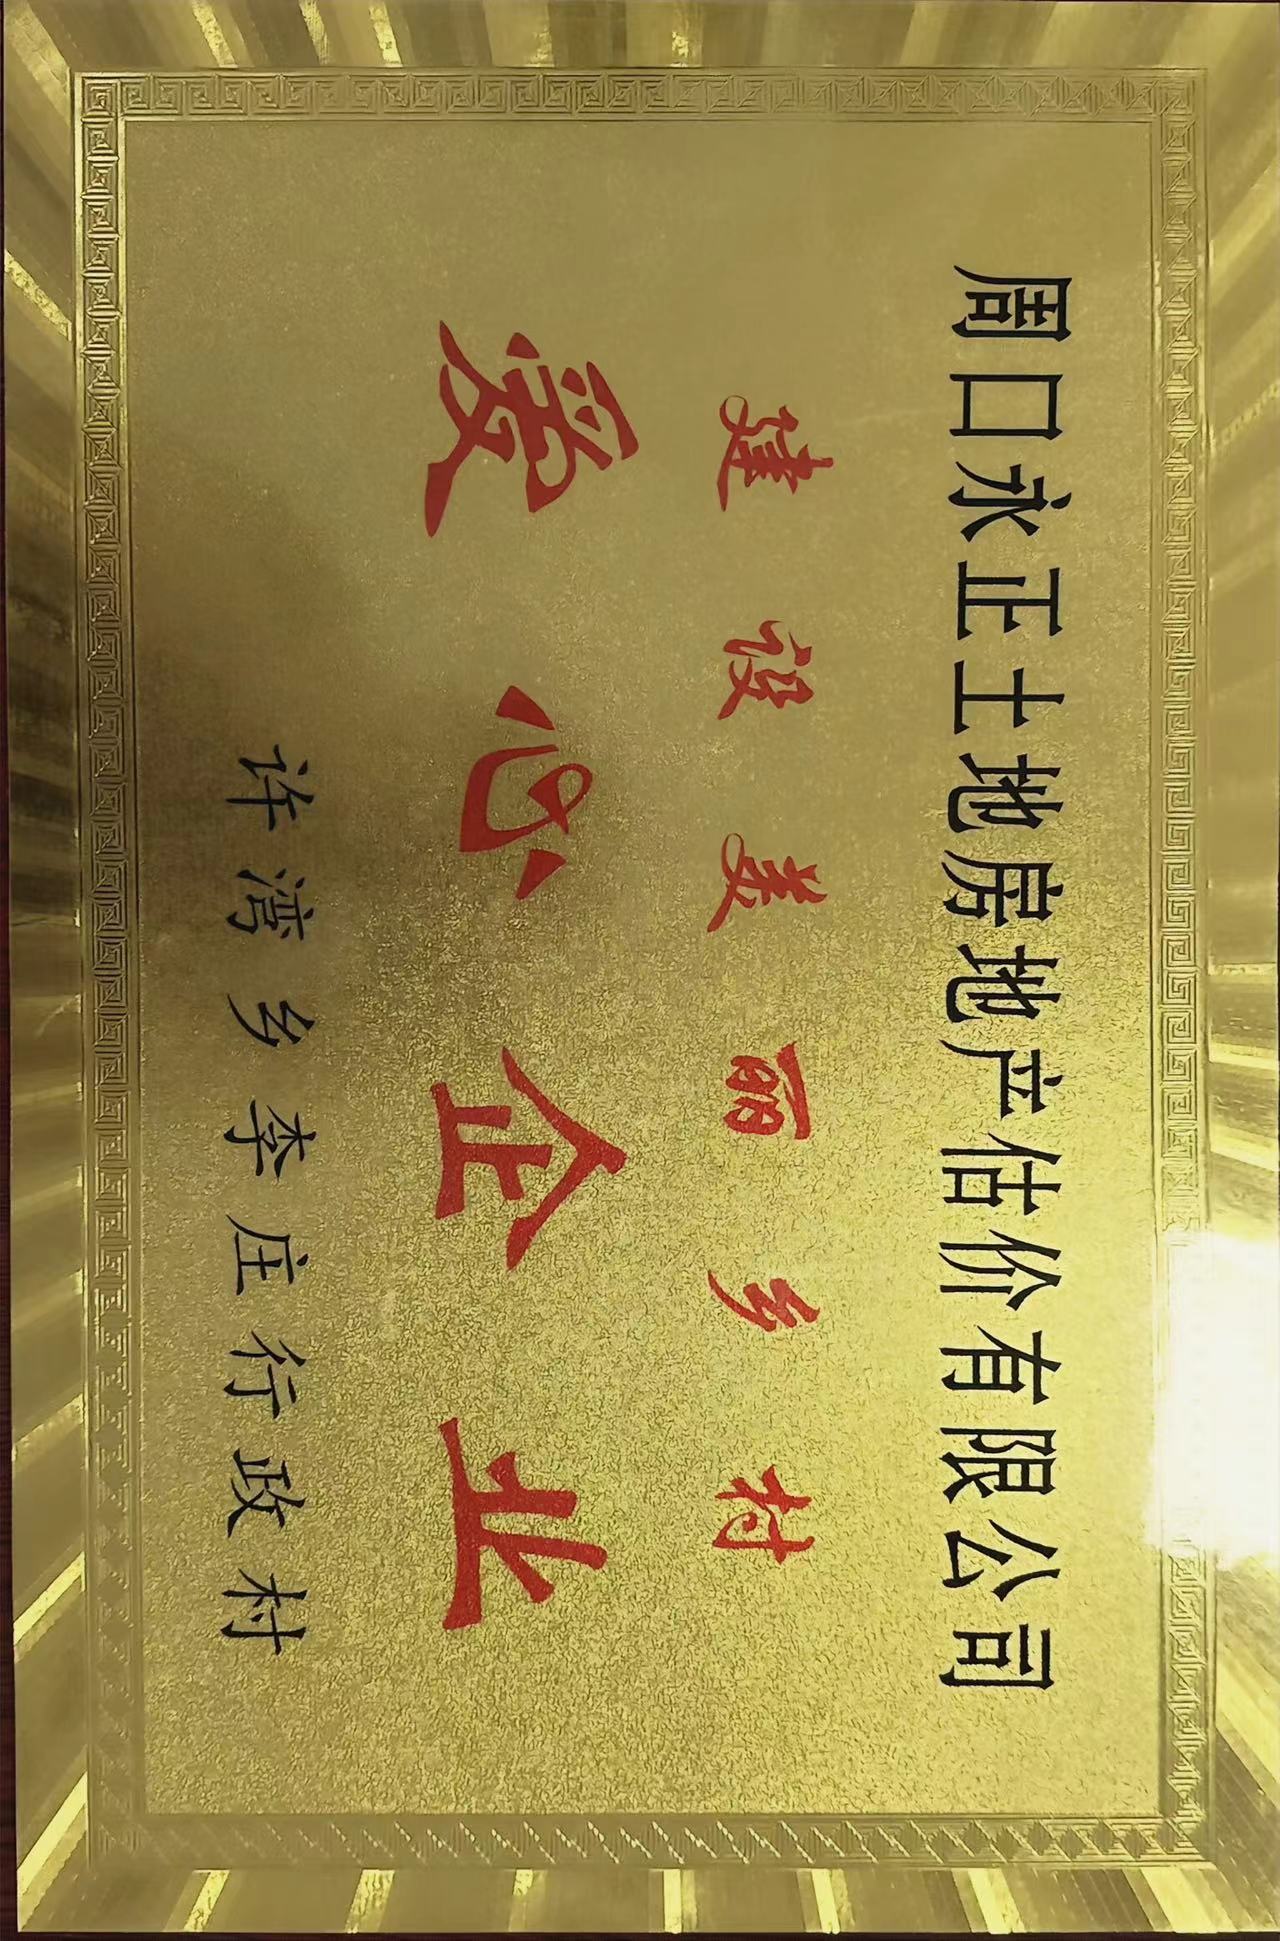 周口永正土地房地产估价有限公司
建设美丽乡村
爱心企业
许湾乡李庄行政村